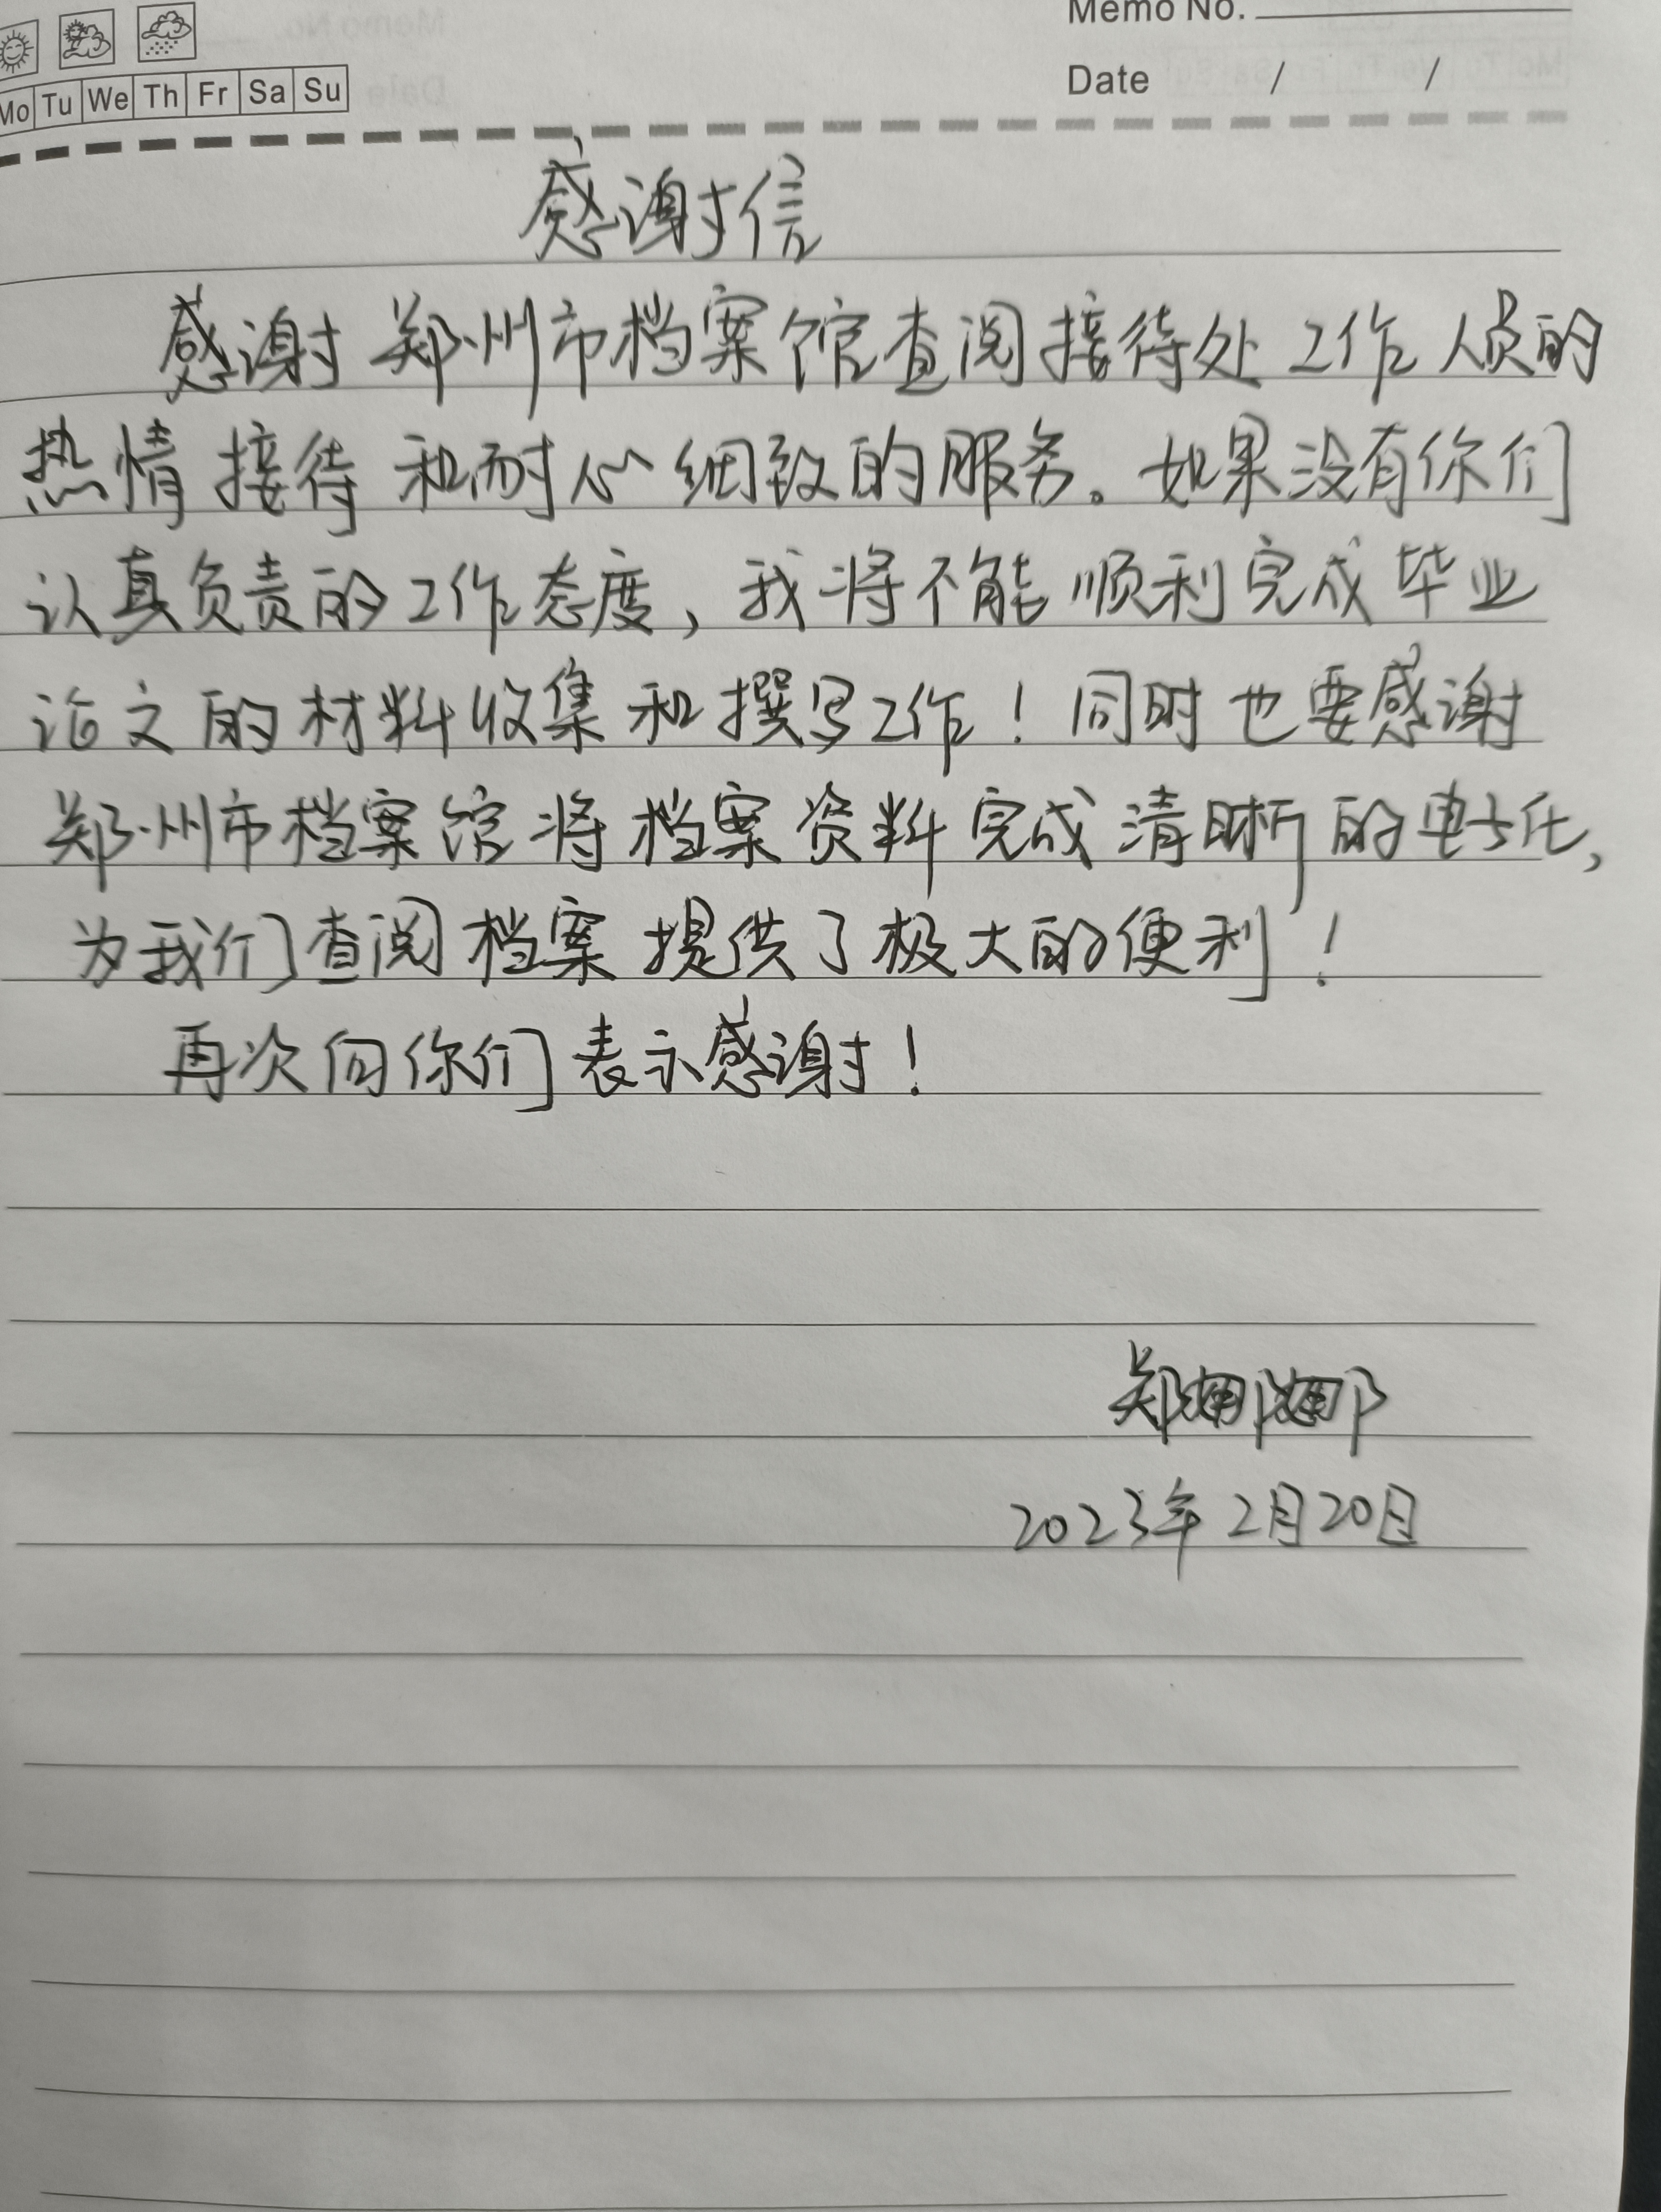 Memo No.
Mo Tu We Th Fr Sa Su
Date / /
感谢信
感谢郑州市档案馆查阅接待处工作人员的
热情接待和耐心细致的服务。如果没有你们
认真负责的工作态度，我将不能顺利完成毕业
论文的材料收集和撰写工作！同时也要感谢
郑州市档案馆将档案资料完成清晰的电子化，
为我们查阅档案提供了极大的便利！
再次向你们表示感谢！
郑娜娜
2023年2月20日